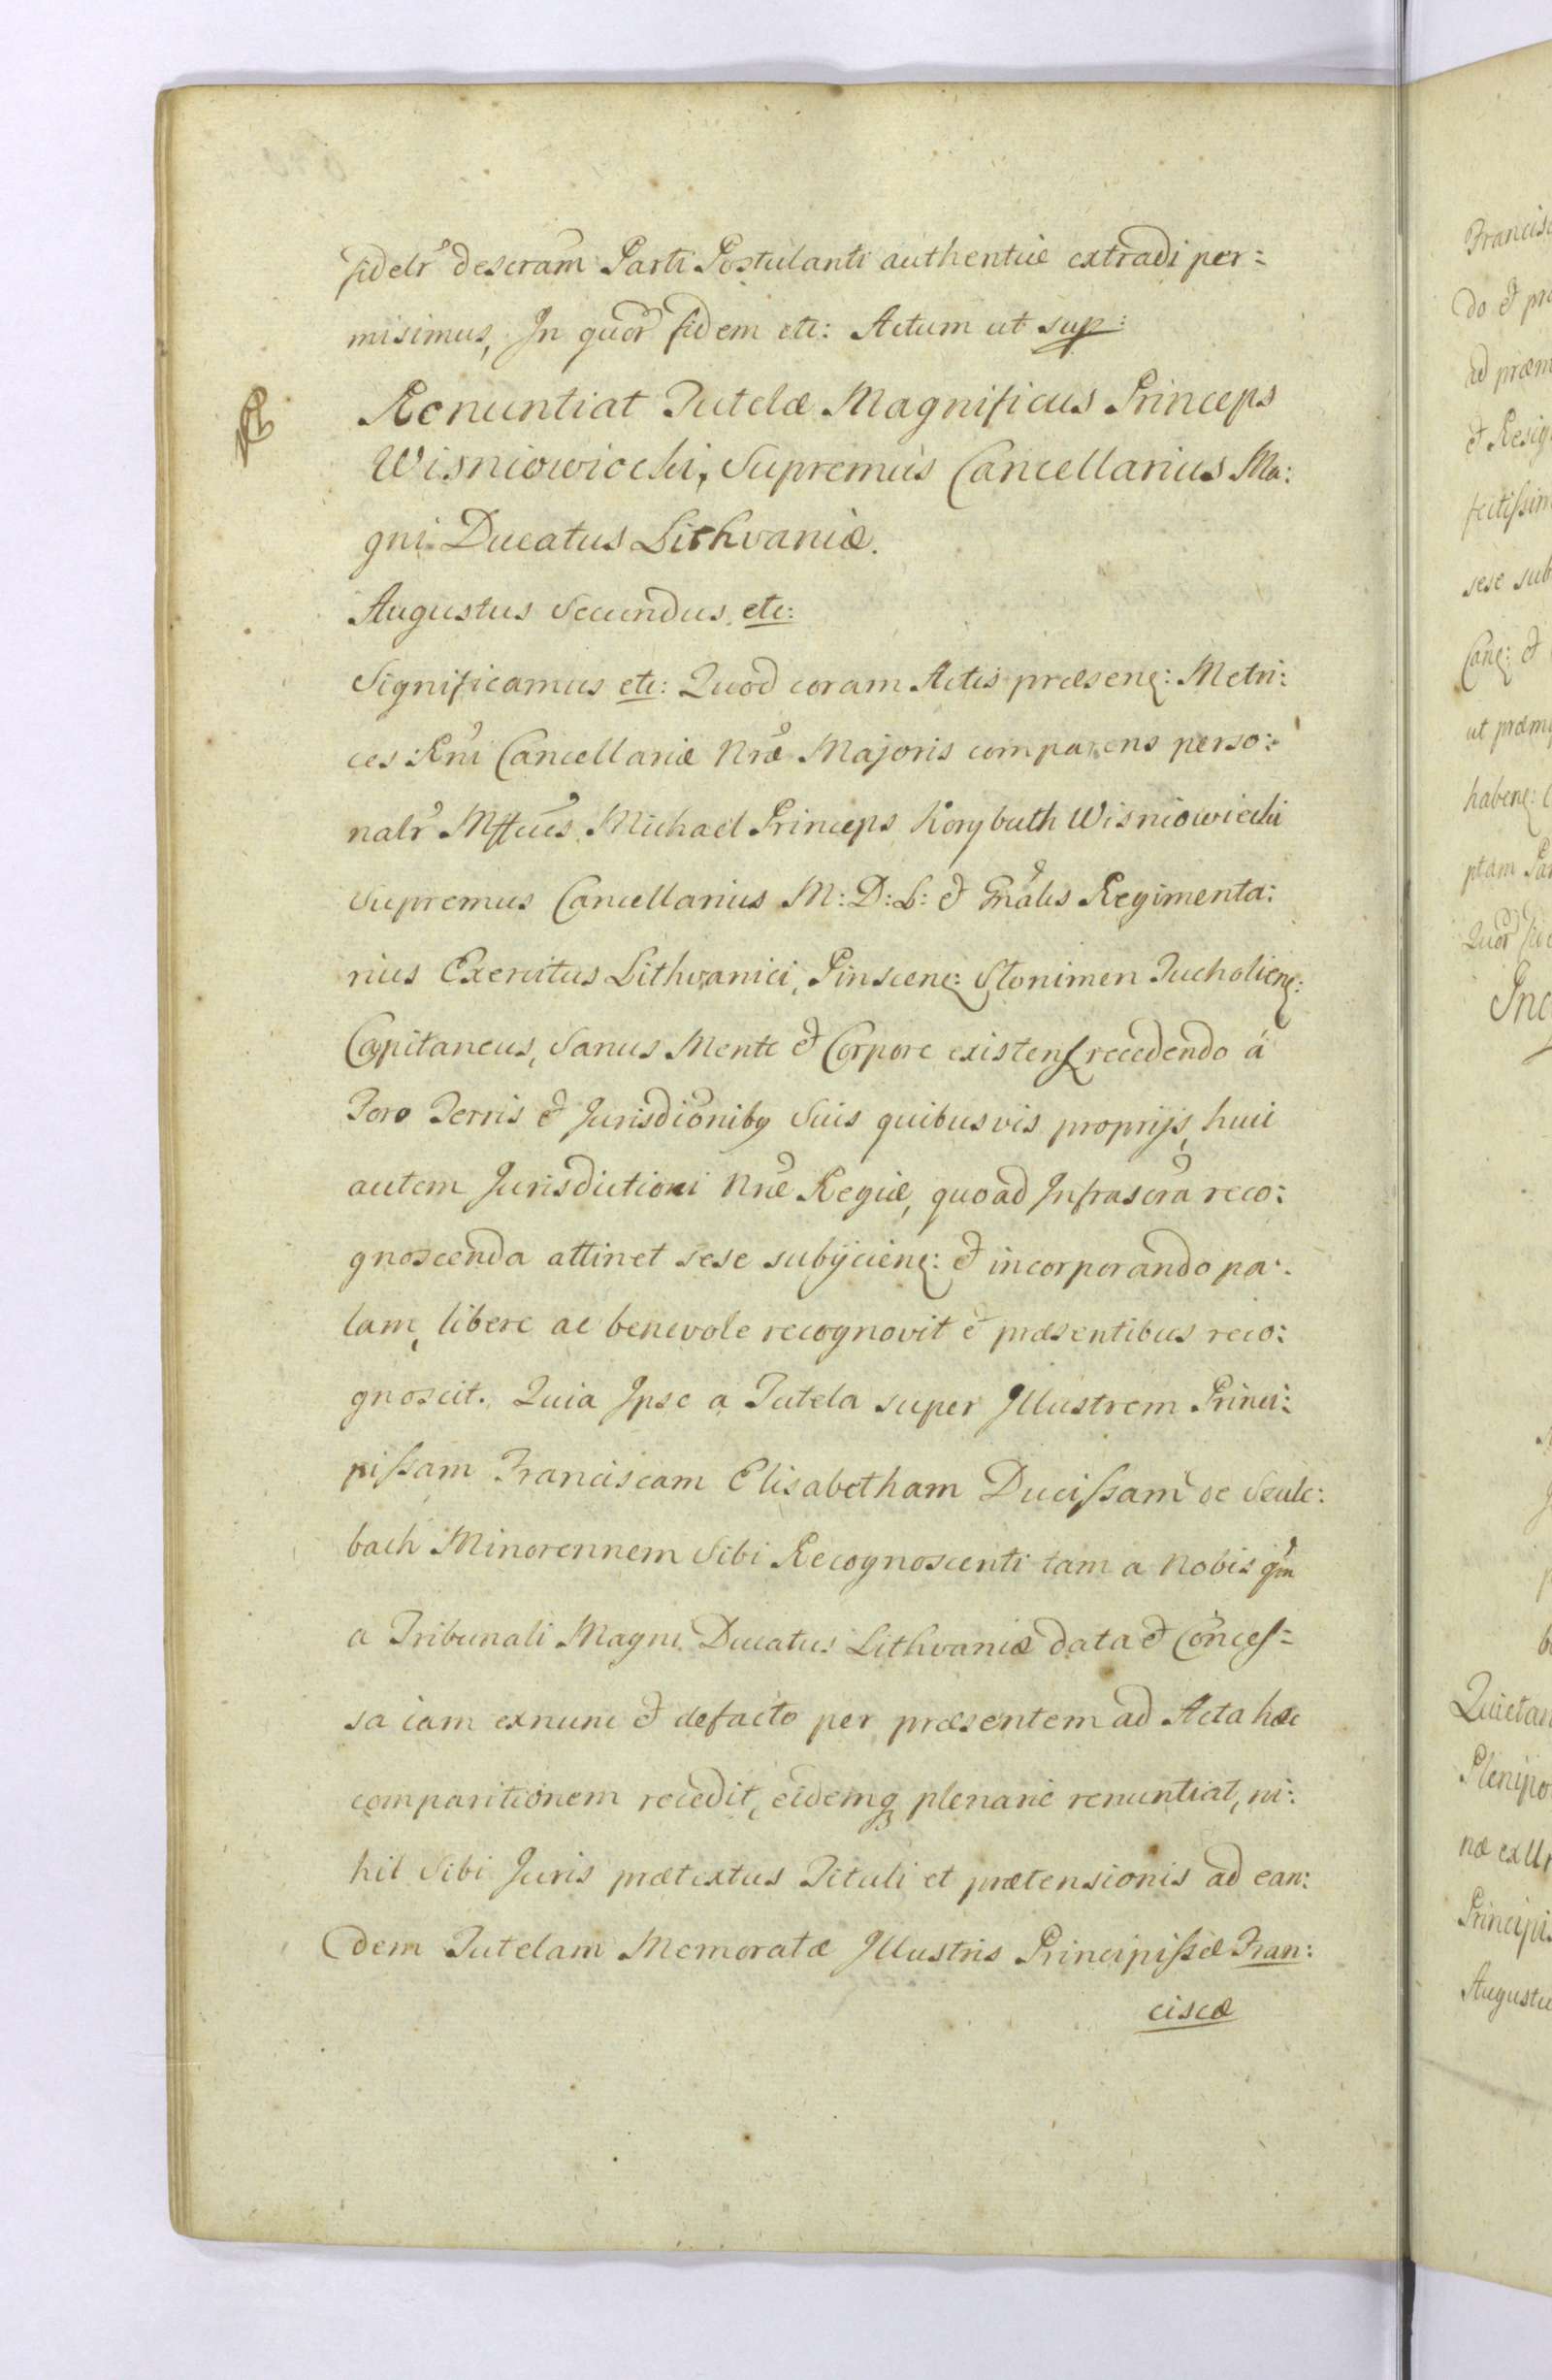 fidelr descram Parti Postulanti authentice extradi per=
misimus, In quor fidem etc: Actum ut sup:
Renuntiat Tutelæ Magnificus Princeps
Wisniowiecki, Supremus Cancellarius Ma:
gni Ducatus Lithvaniæ.
Augustus Secundus etc:
Significamus etc: Quod coram Actis præsen: Metri:
ces Rni Cancellariæ Nræ Majoris comparens perso:
nalr Mffcus Michael Princeps Korybuth Wisniowiecki
Supremus Cancellarius M: D: L: et Gnalis Regimenta:
rius Exercitus Lithvanici, Pinscen: Slonimen Tucholien:
Capitaneus, Sanus Mente et Corpore existens recedendo á
Foro Terris et Jurisdionibq Suis quibusvis proprijs, huic
autem Jurisdictioni Nræ Regiæ, quoad Infrascra reco:
gnoscenda attinet sese subijcien: et incorporando pa:
lam, libere ac benevole recognovit et præsentibus reco:
gnoscit. Quia Ipse a Tutela super Illustrem Princi:
pissam Franciscam Elisabetham Ducissam de Seule:
bach Minorennem Sibi Recognoscenti tam a Nobis qm
a Tribunali Magni Ducatus Lithvaniæ data et Conces=
sa iam exnunc et defacto per præsentem ad Acta hæc
comparitionem recedit, eidemq plenarie renuntiat, ni:
hil Sibi Juris prætextus Tituli et prætensionis ad ean:
dem Tutelam Memoratæ Illustris Principissæ Fran:
ciscæ
Francisc
do et pr
ad præm
et Resig
fectissim
sese sub
Canc: et
ut præm
haben:
ptam Par
Quor
Quietan
Plenipo
næ ex
Principis
Augustu